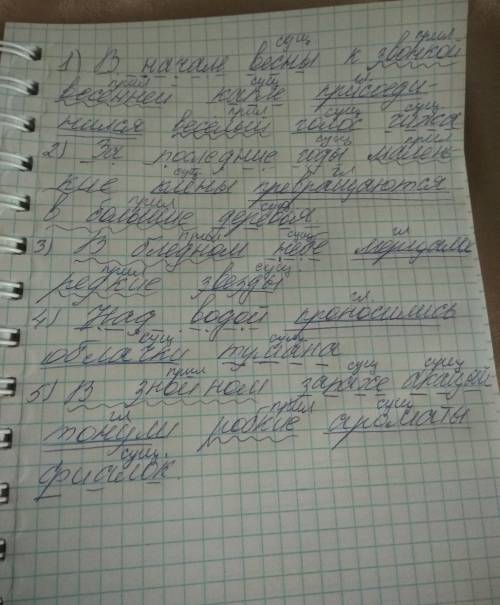 сущ прил
1) В начале весны к звонкой
прил сущ гл
весенней капле присоеди-
прил сущ сущ
нился весёлый голос чижа
сущ прил
2) За последние годы малень
сущ гл
кие клёны превращаются
прил сущ
в большие деревья
прил сущ гл
3) В бледном небе мерцали
прил сущ
редкие звезды
гл
4) Над водой проносились
сущ сущ
облачки тумана
прил сущ сущ
5) В знойном запахе акаций
гл прил сущ
тонули робкие ароматы
сущ
фиалок.